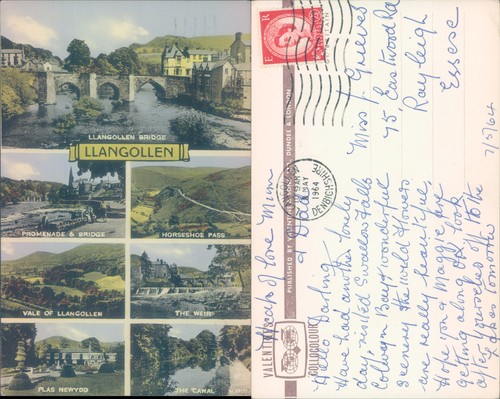 LLANGOLLEN BRIDGE
LLANGOLLEN
PROMENADE & BRIDGE
HORSESHOE PASS
VALE OF LLANGOLLEN
THE WEIR
PLAS NEWYDD
THE CANAL
E R
9 15 AM
MAY
1964
DENBIGHSHIRE
PUBLISHED BY VALENTINE & SONS, LTD., DUNDEE & LONDON
VALENTINE'S
COLLOCOLOUR
7/5/64
Miss J Greeves
75, Eastwood Rd
Rayleigh
Essex
Hello Darling
Have had another lovely
day, visited Swallow Falls
Colwyn Bay, wonderful
scenery, the wild flowers
are really beautiful,
Hope you & Maggie are
getting along ok. look
after yourselves. Tate
Stacks of love Mum
& Dad